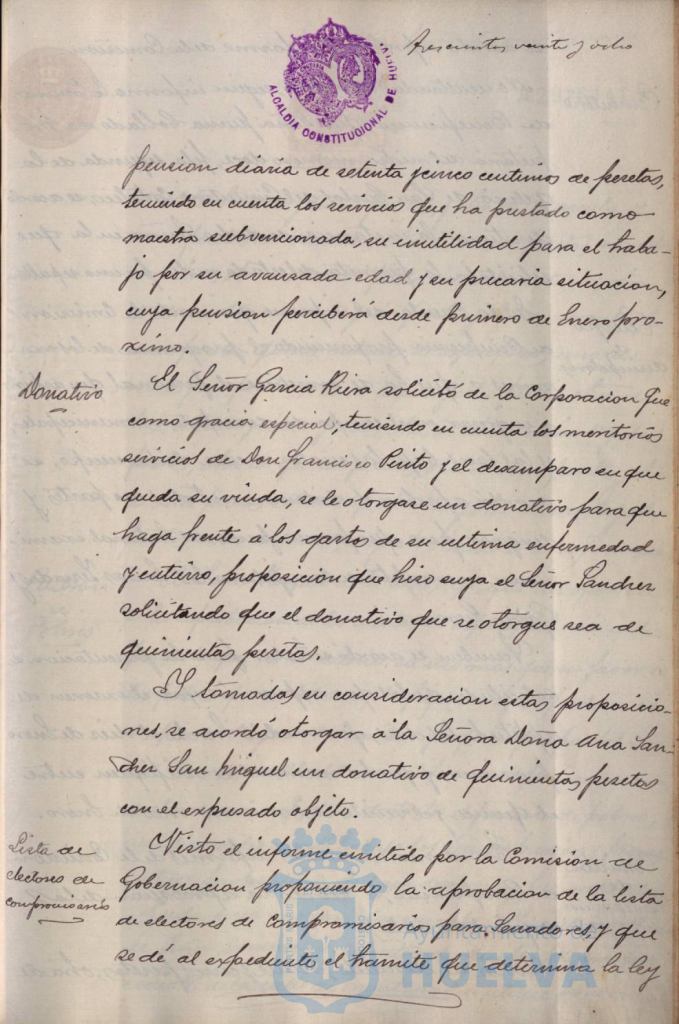 Trescientos veinte y ocho
ALCALDIA CONSTITUCIONAL DE HUELVA
pension diaria de setenta y cinco centimos de pesetas,
teniendo en cuenta los servicios que ha prestado como
maestra subvencionada, su inutilidad para el traba-
jo por su avanzada edad y su precaria situacion,
cuya pension percibirá desde primero de Enero pro-
ximo.
Donativo
El Señor Garcia Riera solicitó de la Corporacion que
como gracia especial, teniendo en cuenta los meritorios
servicios de Don Francisco Pinto y el desamparo en que
queda su viuda, se le otorgase un donativo para que
haga frente á los gastos de su ultima enfermedad
y entierro, proposicion que hizo suya el Señor Sanchez
solicitando que el donativo que se otorgue sea de
quinientas pesetas.
Y tomadas en consideracion estas proposicio-
nes, se acordó otorgar á la Señora Doña Ana San-
chez San Miguel un donativo de quinientas pesetas
con el expresado objeto.
Lista de
electores de
compromisarios
Visto el informe emitido por la Comision de
Gobernacion proponiendo la aprobacion de la lista
de electores de Compromisarios para Senadores, y que
se dé al expediente el tramite que determina la ley
Ayuntamiento de
HUELVA